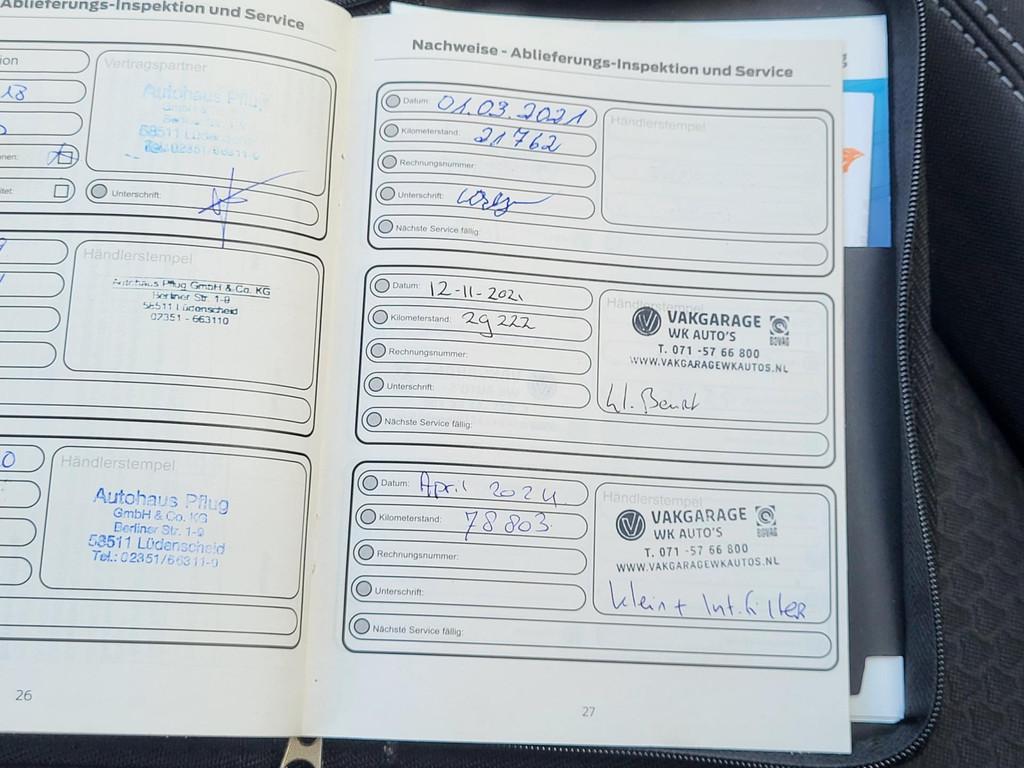 Ablieferungs-Inspektion und Service
ion
Vertragspartner
13
Autohaus Pflug
58511 Lüdenscheid
Tel.: 02351/66311-0
nen:
Unterschrift:
Händlerstempel
Autohaus Pflug GmbH & Co. KG
Berliner Str. 1-9
58511 Lüdenscheid
02351 - 663110
0
Händlerstempel
Autohaus Pflug
GmbH & Co. KG
Berliner Str. 1-9
58511 Lüdenscheid
Tel.: 02351/66311-0
26
Nachweise - Ablieferungs-Inspektion und Service
Datum: 01.03.2021
Händlerstempel
Kilometerstand: 21762
Rechnungsnummer:
Unterschrift:
Nächste Service fällig:
Datum: 12-11-2021
Händlerstempel
VAKGARAGE
WK AUTO'S
BOVAG
T. 071 -57 66 800
WWW.VAKGARAGEWKAUTOS.NL
Kilometerstand: 29222
Rechnungsnummer:
Unterschrift:
Kl. Beurt
Nächste Service fällig:
Datum: April 2024
Händlerstempel
VAKGARAGE
WK AUTO'S
BOVAG
T. 071 -57 66 800
WWW.VAKGARAGEWKAUTOS.NL
Kilometerstand: 78803
Rechnungsnummer:
Unterschrift:
Klein + Int. filter
Nächste Service fällig:
27